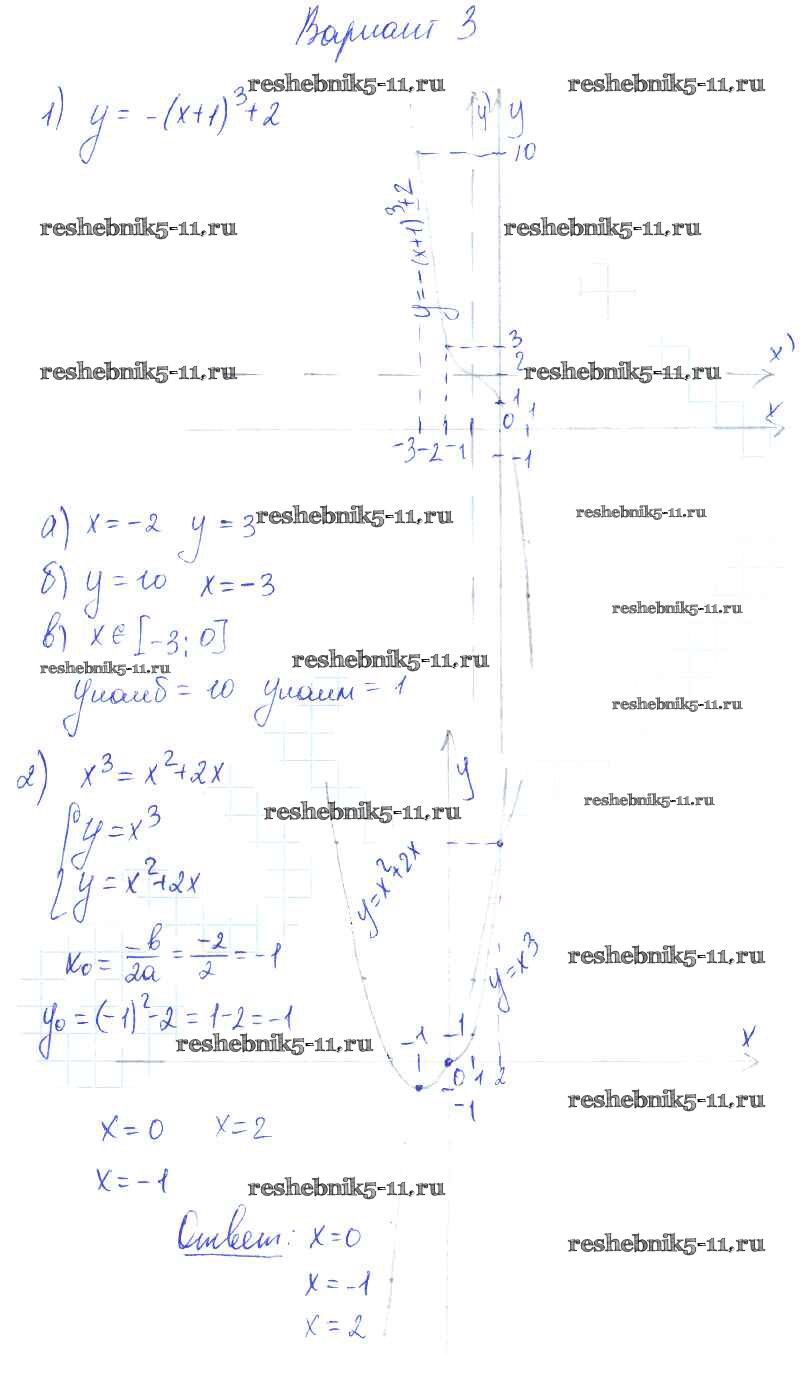 Вариант 3
reshebnik5-11.ru reshebnik5-11.ru
1) y = -(x+1)³+2
y) y
10
y=-(x+1)³+2
reshebnik5-11.ru reshebnik5-11.ru
3
x)
2
reshebnik5-11.ru reshebnik5-11.ru
1
x
0 1
-3 -2 -1
-1
а) x = -2 y = 3
reshebnik5-11.ru reshebnik5-11.ru
б) y = 10 x = -3
в) x ∈ [-3; 0]
reshebnik5-11.ru
reshebnik5-11.ru reshebnik5-11.ru
yнаиб = 10 yнаим = 1
reshebnik5-11.ru
2) x³ = x²+2x
y
reshebnik5-11.ru reshebnik5-11.ru
{ y = x³
y = x²+2x
y=x²+2x
y=x³
x₀ = -b/2a = -2/2 = -1
reshebnik5-11.ru
y₀ = (-1)²-2 = 1-2 = -1
reshebnik5-11.ru
-1 -1
x
-0 1 2
-1
reshebnik5-11.ru
x = 0 x = 2
x = -1
reshebnik5-11.ru
Ответ: x = 0
reshebnik5-11.ru
x = -1
x = 2